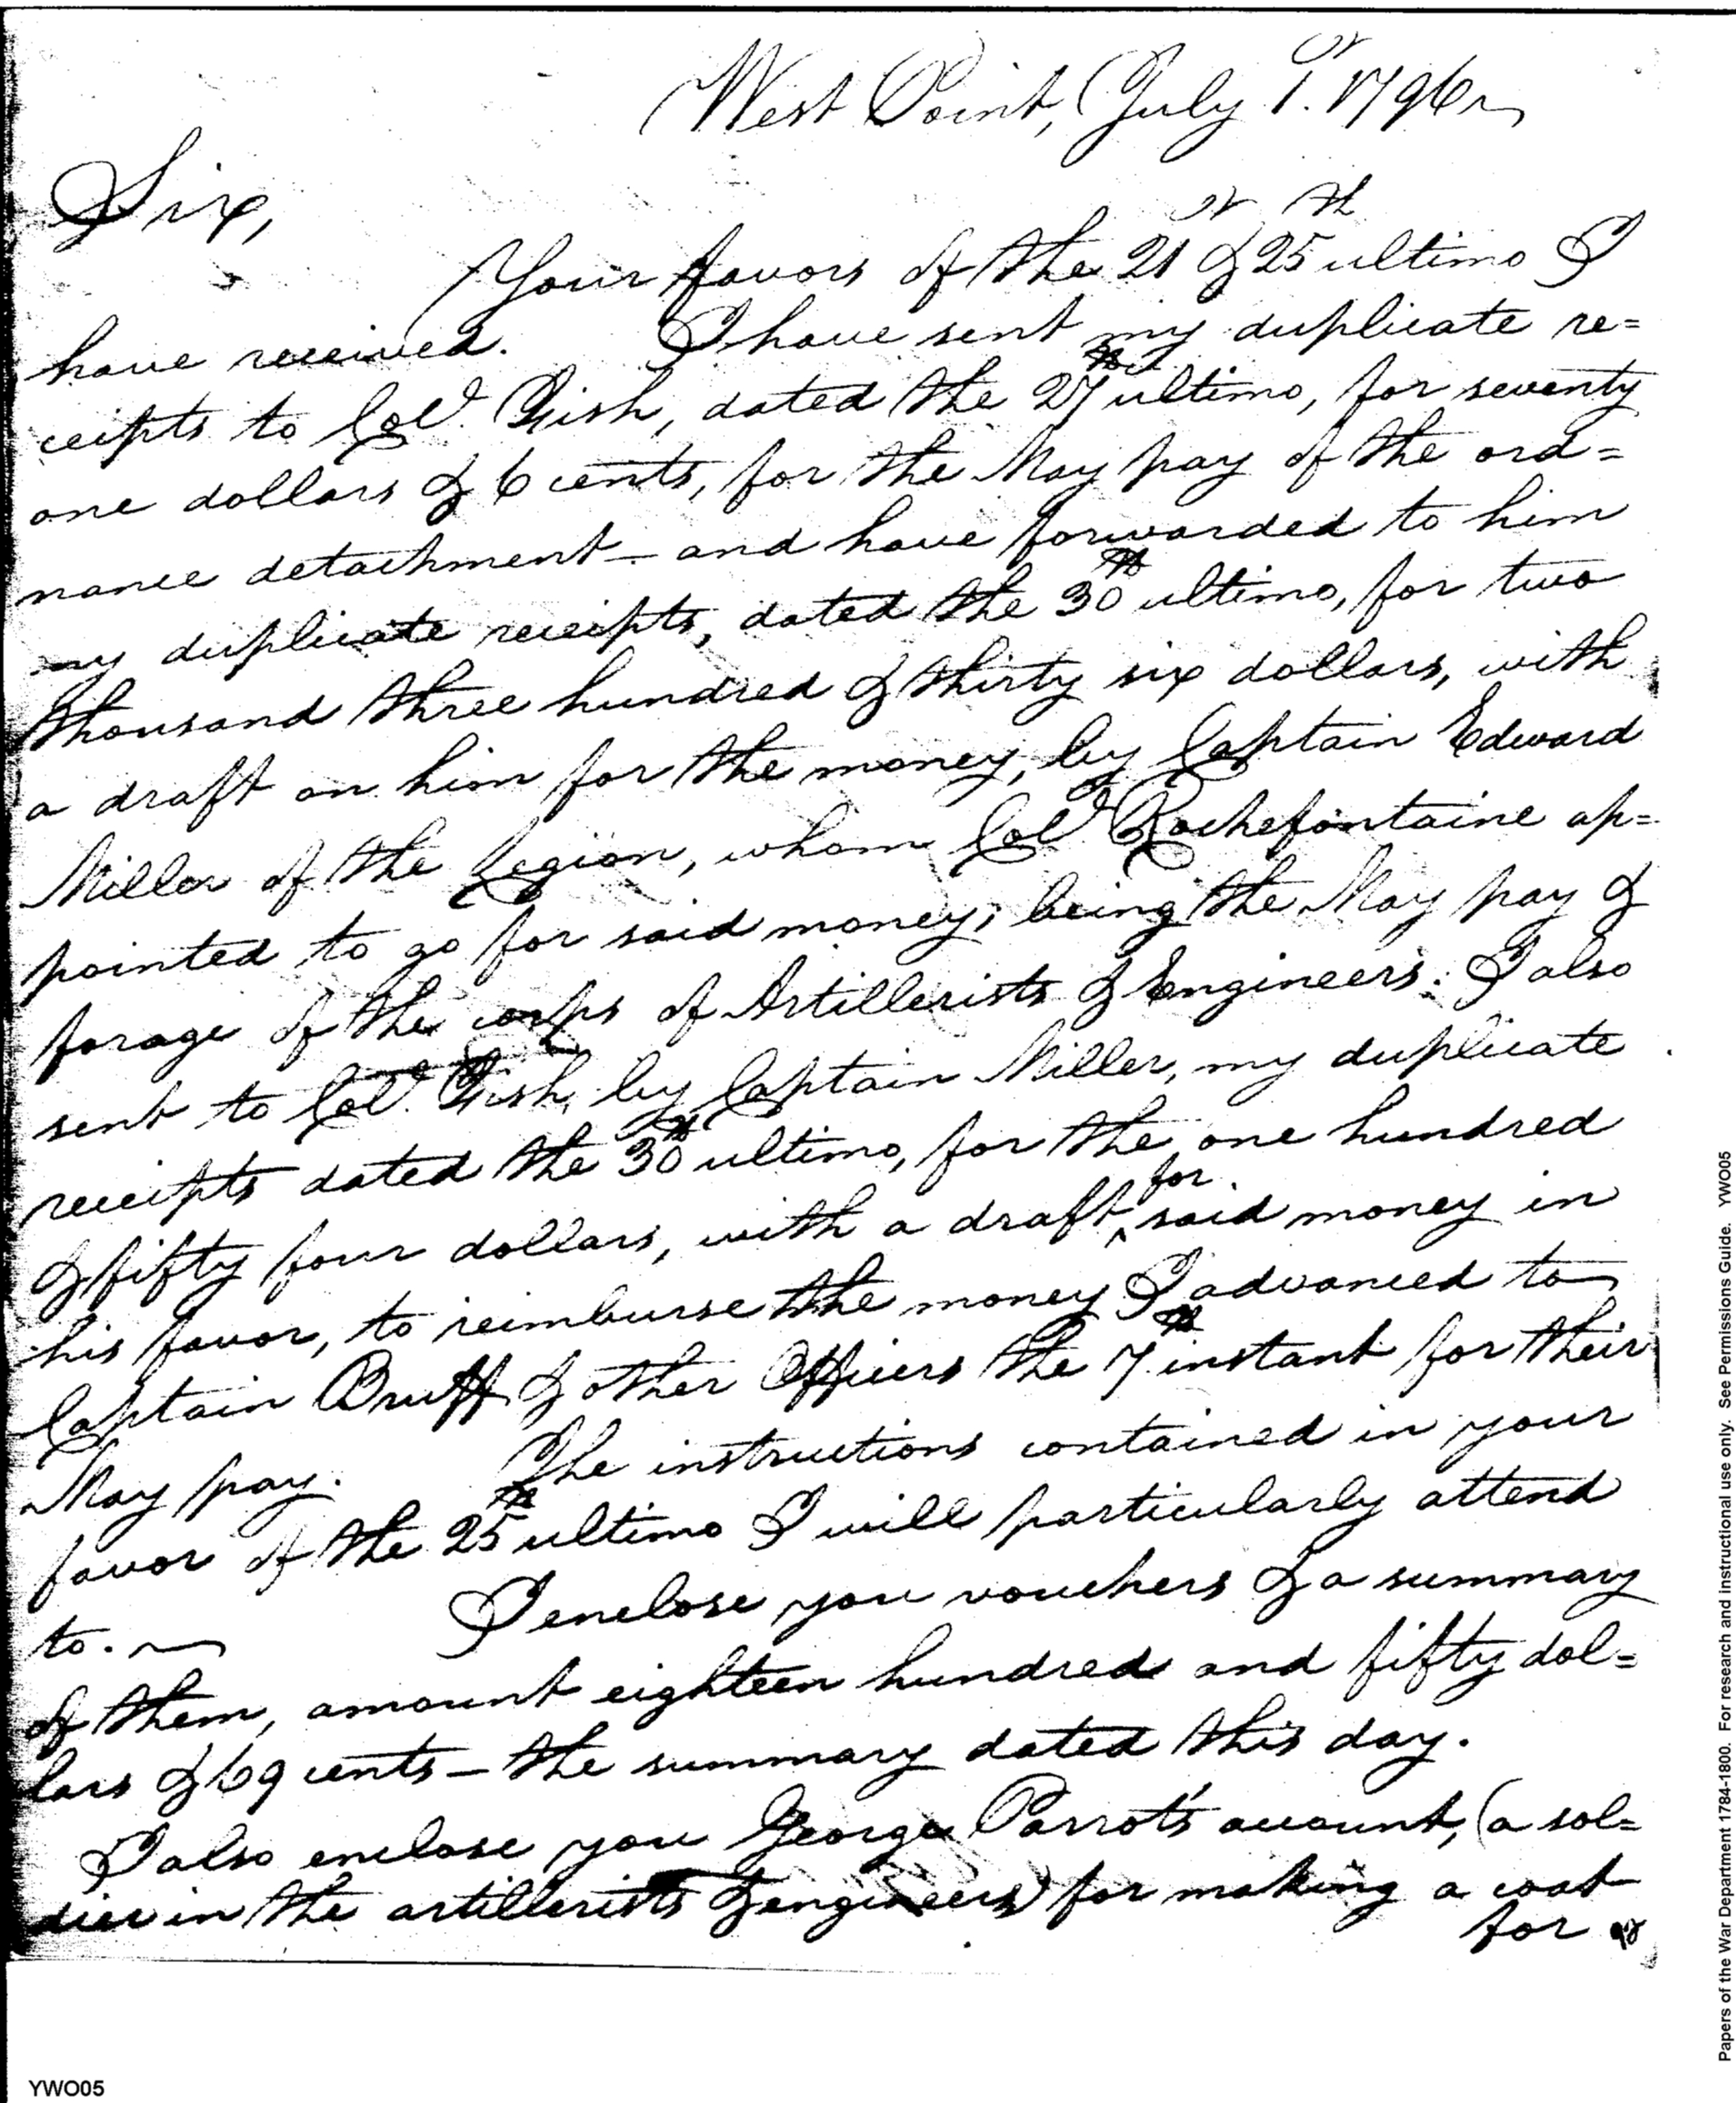 West Point, July 1st. 1796
Sir,
Your favors of the 21st & 25th ultimo I
have received. I have sent my duplicate re=
ceipts to Colo. Fish, dated the 27th ultimo, for seventy
one dollars & 6 cents, for the May pay of the ord=
nance detachment — and have forwarded to him
my duplicate receipts, dated the 30th ultimo, for two
thousand three hundred & thirty six dollars, with
a draft on him for the money, by Captain Edward
Miller of the Legion, whom Colo. Rochefontaine ap=
pointed to go for said money; being the May pay &
forage of the corps of Artillerists & Engineers. I also
sent to Colo. Fish, by Captain Miller, my duplicate
receipts dated the 30th ultimo, for the one hundred
& fifty four dollars, with a draft for said money in
his favor, to reimburse the money I advanced to
Captain Bruff & other Officers the 7th instant for their
May pay. The instructions contained in your
favor of the 25th ultimo I will particularly attend
to. I enclose you vouchers & a summary
of them, amount eighteen hundred and fifty dol=
lars & 69 cents — the summary dated this day.
I also enclose you George Parrot's account, (a sol=
dier in the artillerists & engineers) for making a coat
for
YWO05
Papers of the War Department 1784-1800. For research and instructional use only. See Permissions Guide. YWO05